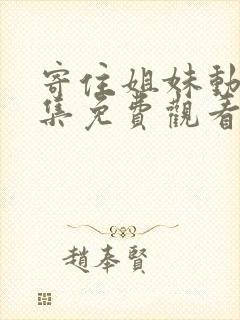 寄住姐妹動
集免費觀看
趙奉賢